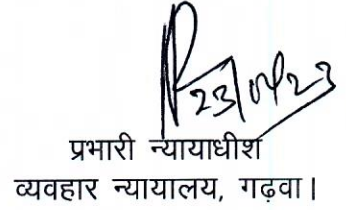 23/04/23
प्रभारी न्यायाधीश
व्यवहार न्यायालय, गढ़वा।